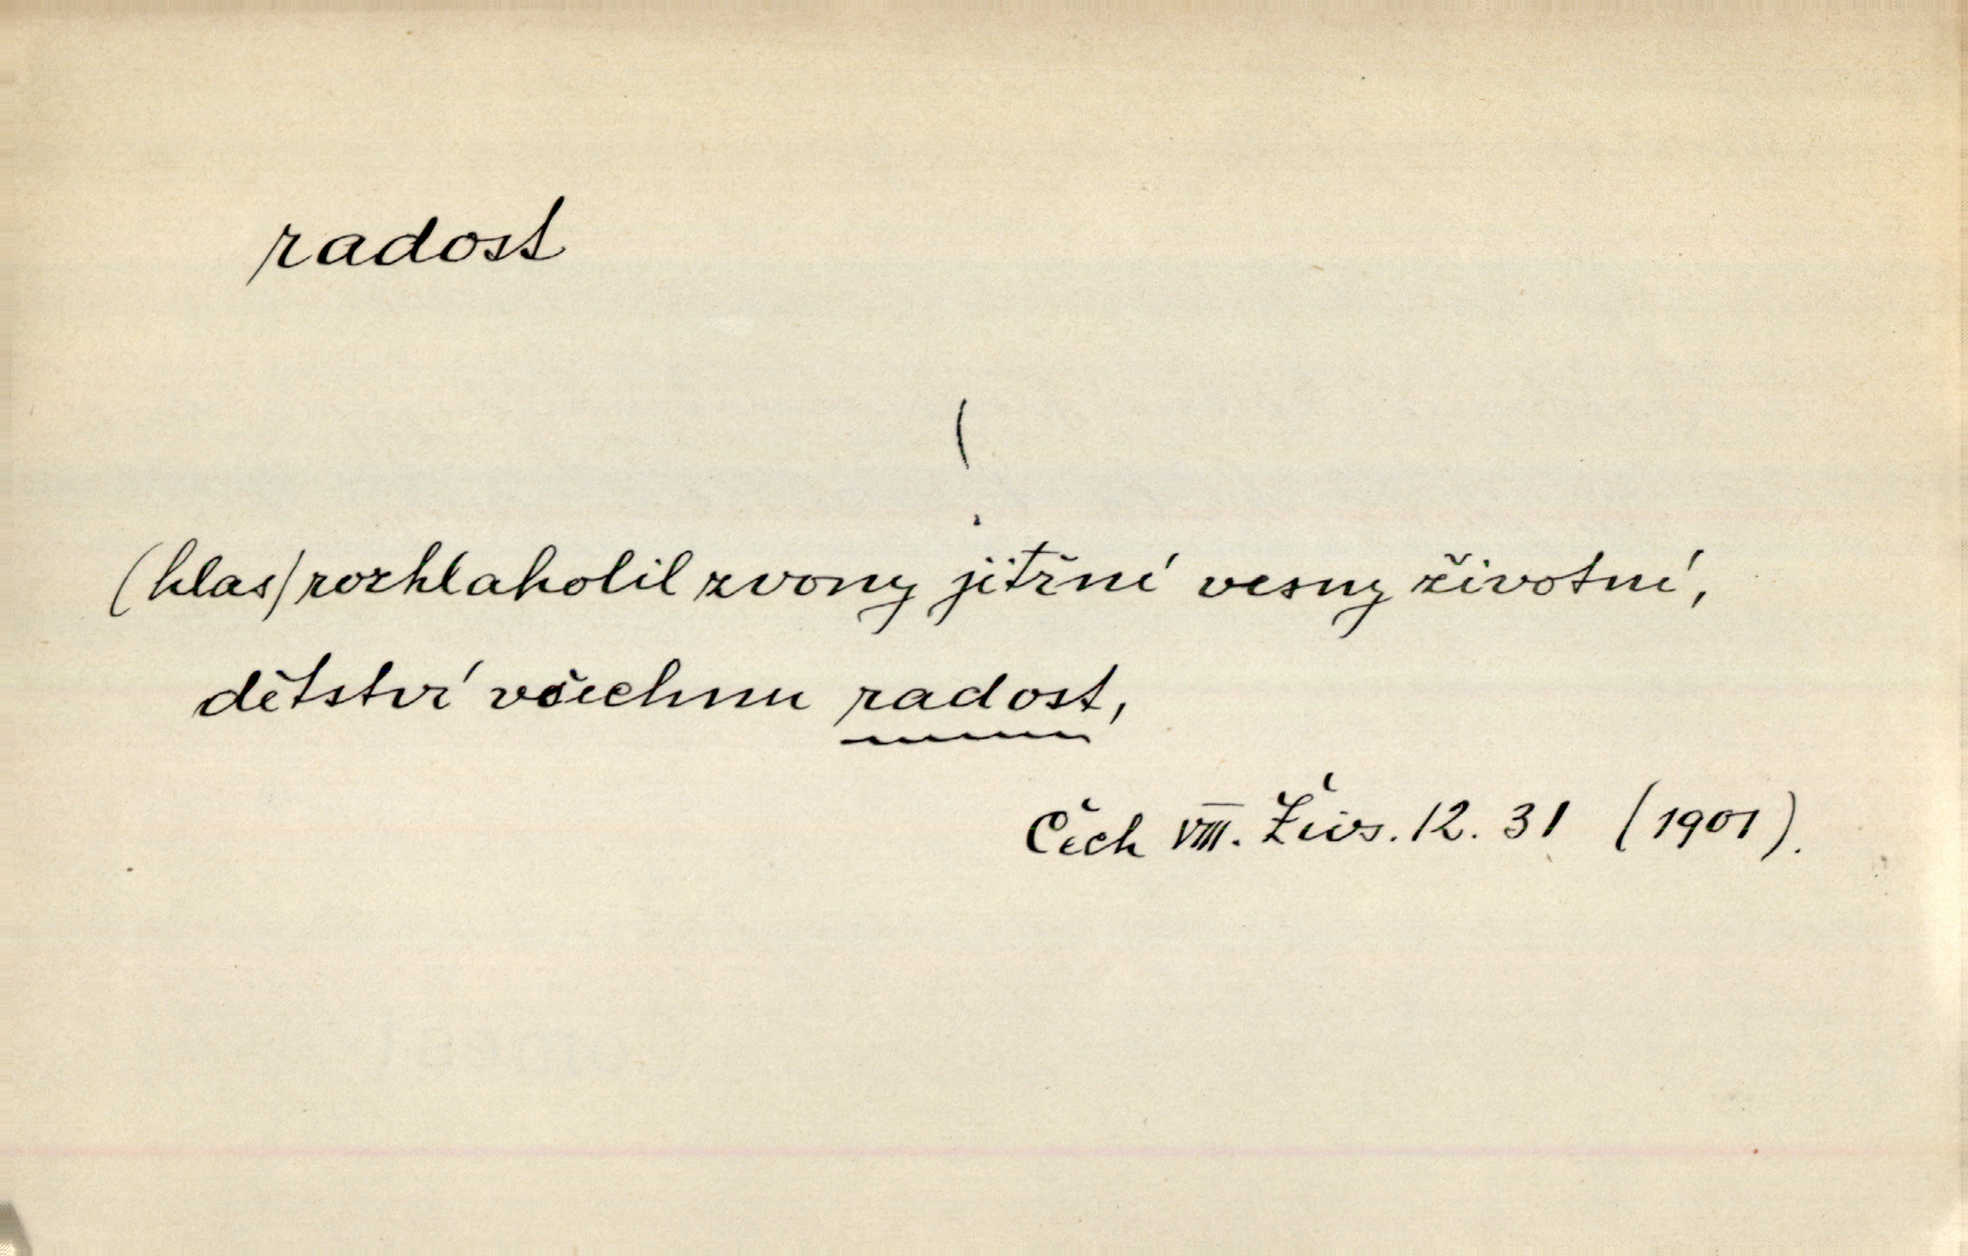 radost
(hlas) rozhlaholil zvony jitřní vesny životní,
dětství všechnu radost,
Čech VIII. Živs. 12. 31 (1901).